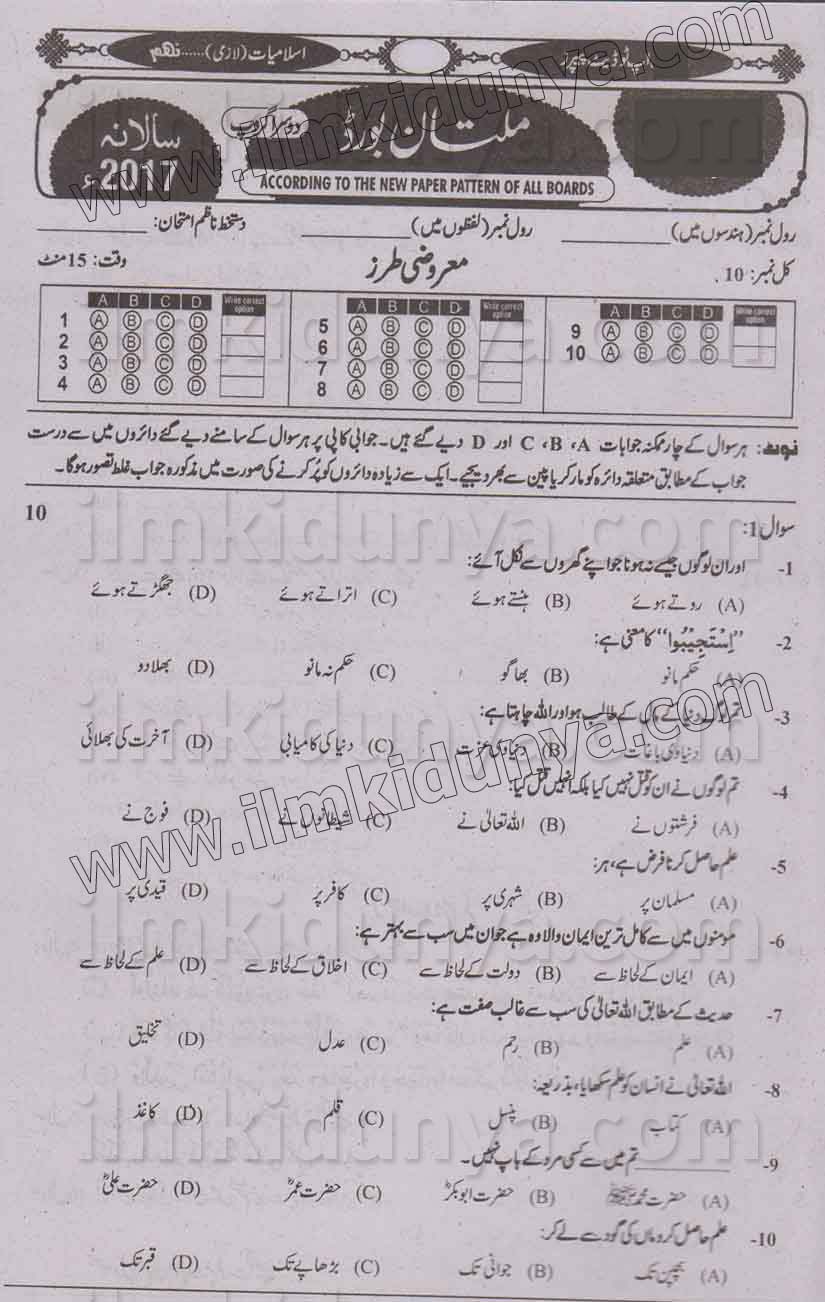 اسلامیات (لازمی)......نہم
اپ ٹو ڈیٹ پیپرز
ملتان بورڈ
دوسرا گروپ
سالانہ
2017ء
ACCORDING TO THE NEW PAPER PATTERN OF ALL BOARDS
رول نمبر (ہندسوں میں) ____________ رول نمبر (لفظوں میں) ____________ دستخط ناظم امتحان: ____________
کل نمبر: 10 معروضی طرز وقت: 15 منٹ
A B C D Write correct option
1 A B C D
2 A B C D
3 A B C D
4 A B C D
A B C D Write correct option
5 A B C D
6 A B C D
7 A B C D
8 A B C D
A B C D Write correct option
9 A B C D
10 A B C D
نوٹ: ہر سوال کے چار ممکنہ جوابات A، B، C اور D دیے گئے ہیں۔ جوابی کاپی پر ہر سوال کے سامنے دیے گئے دائروں میں سے درست
جواب کے مطابق متعلقہ دائرہ کو مارکر یا پین سے بھر دیجیے۔ ایک سے زیادہ دائروں کو پُر کرنے کی صورت میں مذکورہ جواب غلط تصور ہوگا۔
سوال 1: 10
1- اور ان لوگوں جیسے نہ ہونا جو اپنے گھروں سے نکل آئے:
(A) روتے ہوئے (B) ہنستے ہوئے (C) اتراتے ہوئے (D) جھگڑتے ہوئے
2- ”اِسْتَجِیْبُوا“ کا معنی ہے:
(A) حکم مانو (B) بھاگو (C) حکم نہ مانو (D) بھلا دو
3- تم لوگ دنیا کے مال کے طالب ہو اور اللہ چاہتا ہے:
(A) دنیاوی باغات (B) دنیاوی عزت (C) دنیا کی کامیابی (D) آخرت کی بھلائی
4- تم لوگوں نے ان کو قتل نہیں کیا بلکہ انہیں قتل کیا:
(A) فرشتوں نے (B) اللہ تعالیٰ نے (C) شیطانوں نے (D) فوج نے
5- علم حاصل کرنا فرض ہے، ہر:
(A) مسلمان پر (B) شہری پر (C) کافر پر (D) قیدی پر
6- مومنوں میں سے کامل ترین ایمان والا وہ ہے جو ان میں سب سے بہتر ہے:
(A) ایمان کے لحاظ سے (B) دولت کے لحاظ سے (C) اخلاق کے لحاظ سے (D) علم کے لحاظ سے
7- حدیث کے مطابق اللہ تعالیٰ کی سب سے غالب صفت ہے:
(A) علم (B) رحم (C) عدل (D) تخلیق
8- اللہ تعالیٰ نے انسان کو علم سکھایا، بذریعہ:
(A) کتاب (B) پنسل (C) قلم (D) کاغذ
9- ____________ تم میں سے کسی مرد کے باپ نہیں۔
(A) حضرت محمد ﷺ (B) حضرت ابوبکرؓ (C) حضرت عمرؓ (D) حضرت علیؓ
10- علم حاصل کرو ماں کی گود سے لے کر:
(A) بچپن تک (B) جوانی تک (C) بڑھاپے تک (D) قبر تک
www.ilmkidunya.com
www.ilmkidunya.com
ilmkidunya.com
ilmkidunya.com
ilmkidunya.com
ilmkidunya.com
ilmkidunya.com
ilmkidunya.com